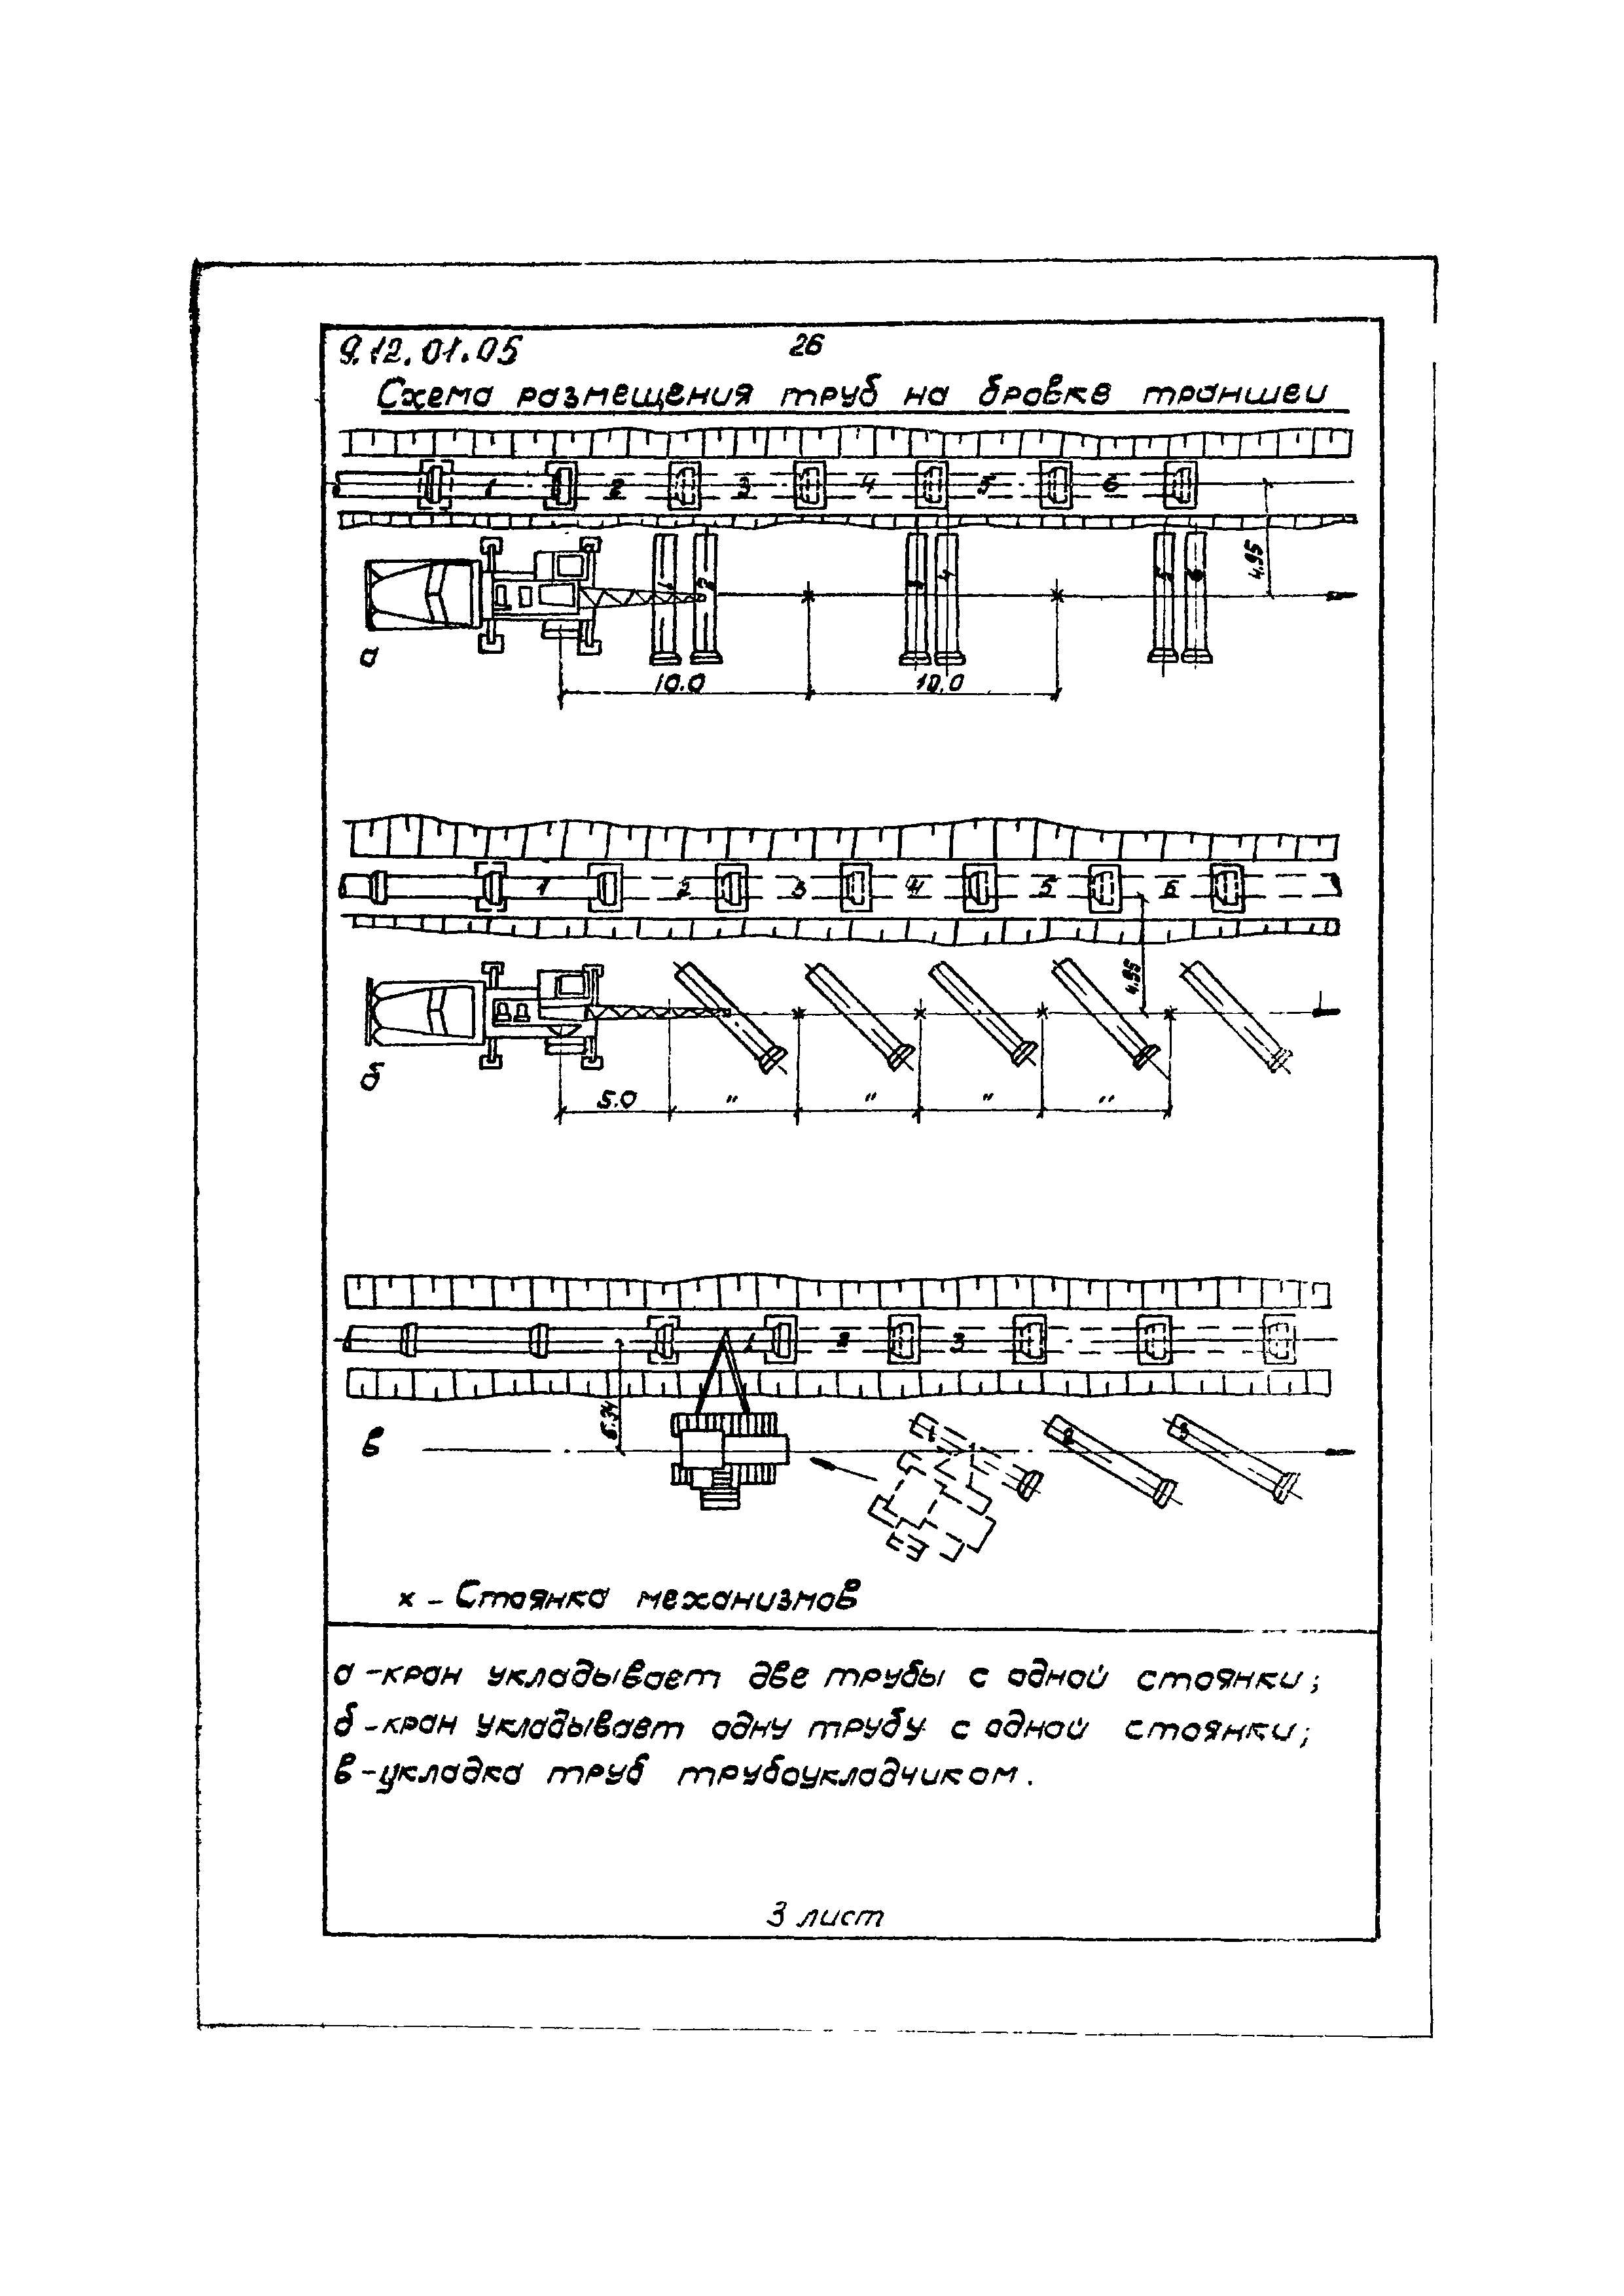 9.12.01.05
26
Схема размещения труб на бровке траншеи
1 2 3 4 5 6
4.95
1 2 3 4 5 6
а
10.0 10.0
1 2 3 4 5 6
4.95
б
5.0 " " " "
1 2 3
6.34
в
1 2 3
х - Стоянка механизмов
а - кран укладывает две трубы с одной стоянки;
б - кран укладывает одну трубу с одной стоянки;
в - укладка труб трубоукладчиком.
3 лист